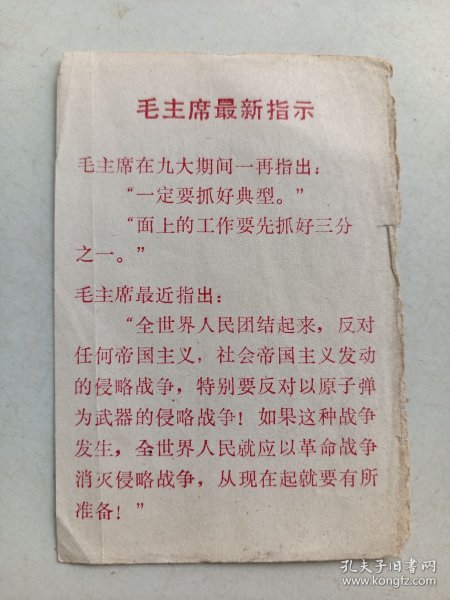 毛主席最新指示
毛主席在九大期间一再指出：
“一定要抓好典型。”
“面上的工作要先抓好三分
之一。”
毛主席最近指出：
“全世界人民团结起来，反对
任何帝国主义，社会帝国主义发动
的侵略战争，特别要反对以原子弹
为武器的侵略战争！如果这种战争
发生，全世界人民就应以革命战争
消灭侵略战争，从现在起就要有所
准备！”
孔夫子旧书网
www.kongfz.com